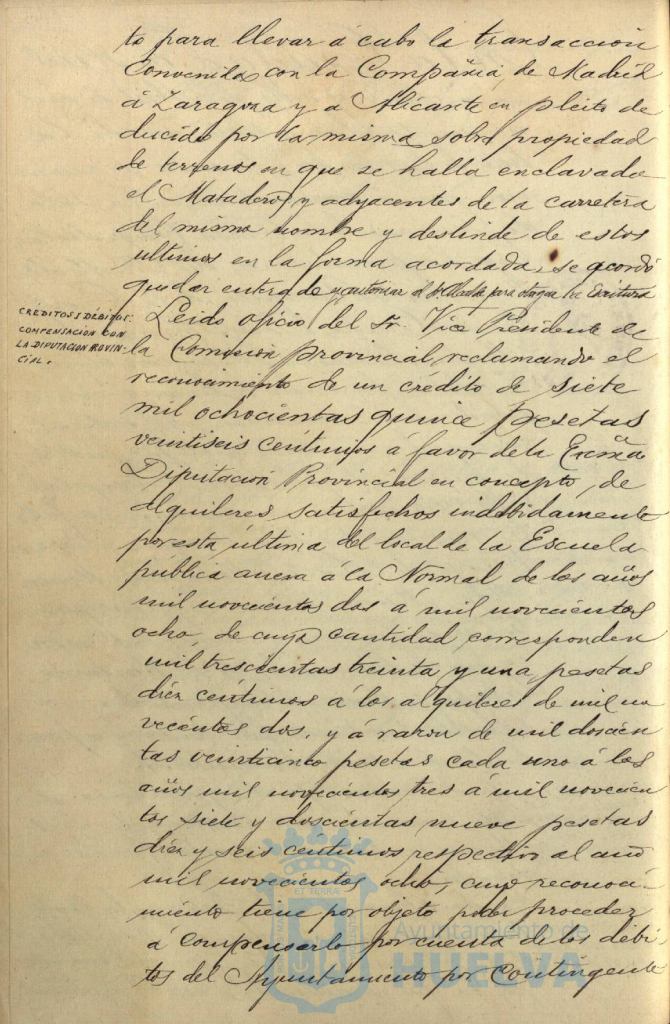 to para llevar á cabo la transaccion
convenida con la Compañia de Madrid
á Zaragoza y a Alicante en pleito de
ducido por la misma sobre propiedad
de terrenos en que se halla enclavado
el Matadero y adyacentes de la carretera
del mismo nombre y deslinde de estos
ultimos en la forma acordada, se acordó
quedar enterado y autorizar al Sr. Alcalde para otorgar la Escritura
CRÉDITOS Y DÉBITOS:
COMPENSACION CON
LA DIPUTACION PROVIN-
CIAL.
Leido oficio del Sr. Vice Presidente de
la Comision provincial, reclamando el
reconocimiento de un crédito de siete
mil ochocientas quince pesetas
veintiseis centimos á favor de la Excmã
Diputacion Provincial en concepto, de
alquileres satisfechos indebidamente
por esta última del local de la Escuela
publica aneva á la Normal de los años
mil novecientos dos á mil novecientos
ocho, de cuya cantidad corresponden
mil trescientas treinta y una pesetas
diez centimos á los alquileres de mil no
vecientos dos, y á razon de mil doscien
tas veinticinco pesetas cada uno á los
años mil novecientos tres á mil novecien
tos siete y doscientas nueve pesetas
diez y seis centimos respectivo al año
mil novecientos ocho, cuyo reconoci-
miento tiene por objeto poder proceder
á compensarlo por cuenta de los débi-
tos del Ayuntamiento por Contingente
Ayuntamiento de
HUELVA